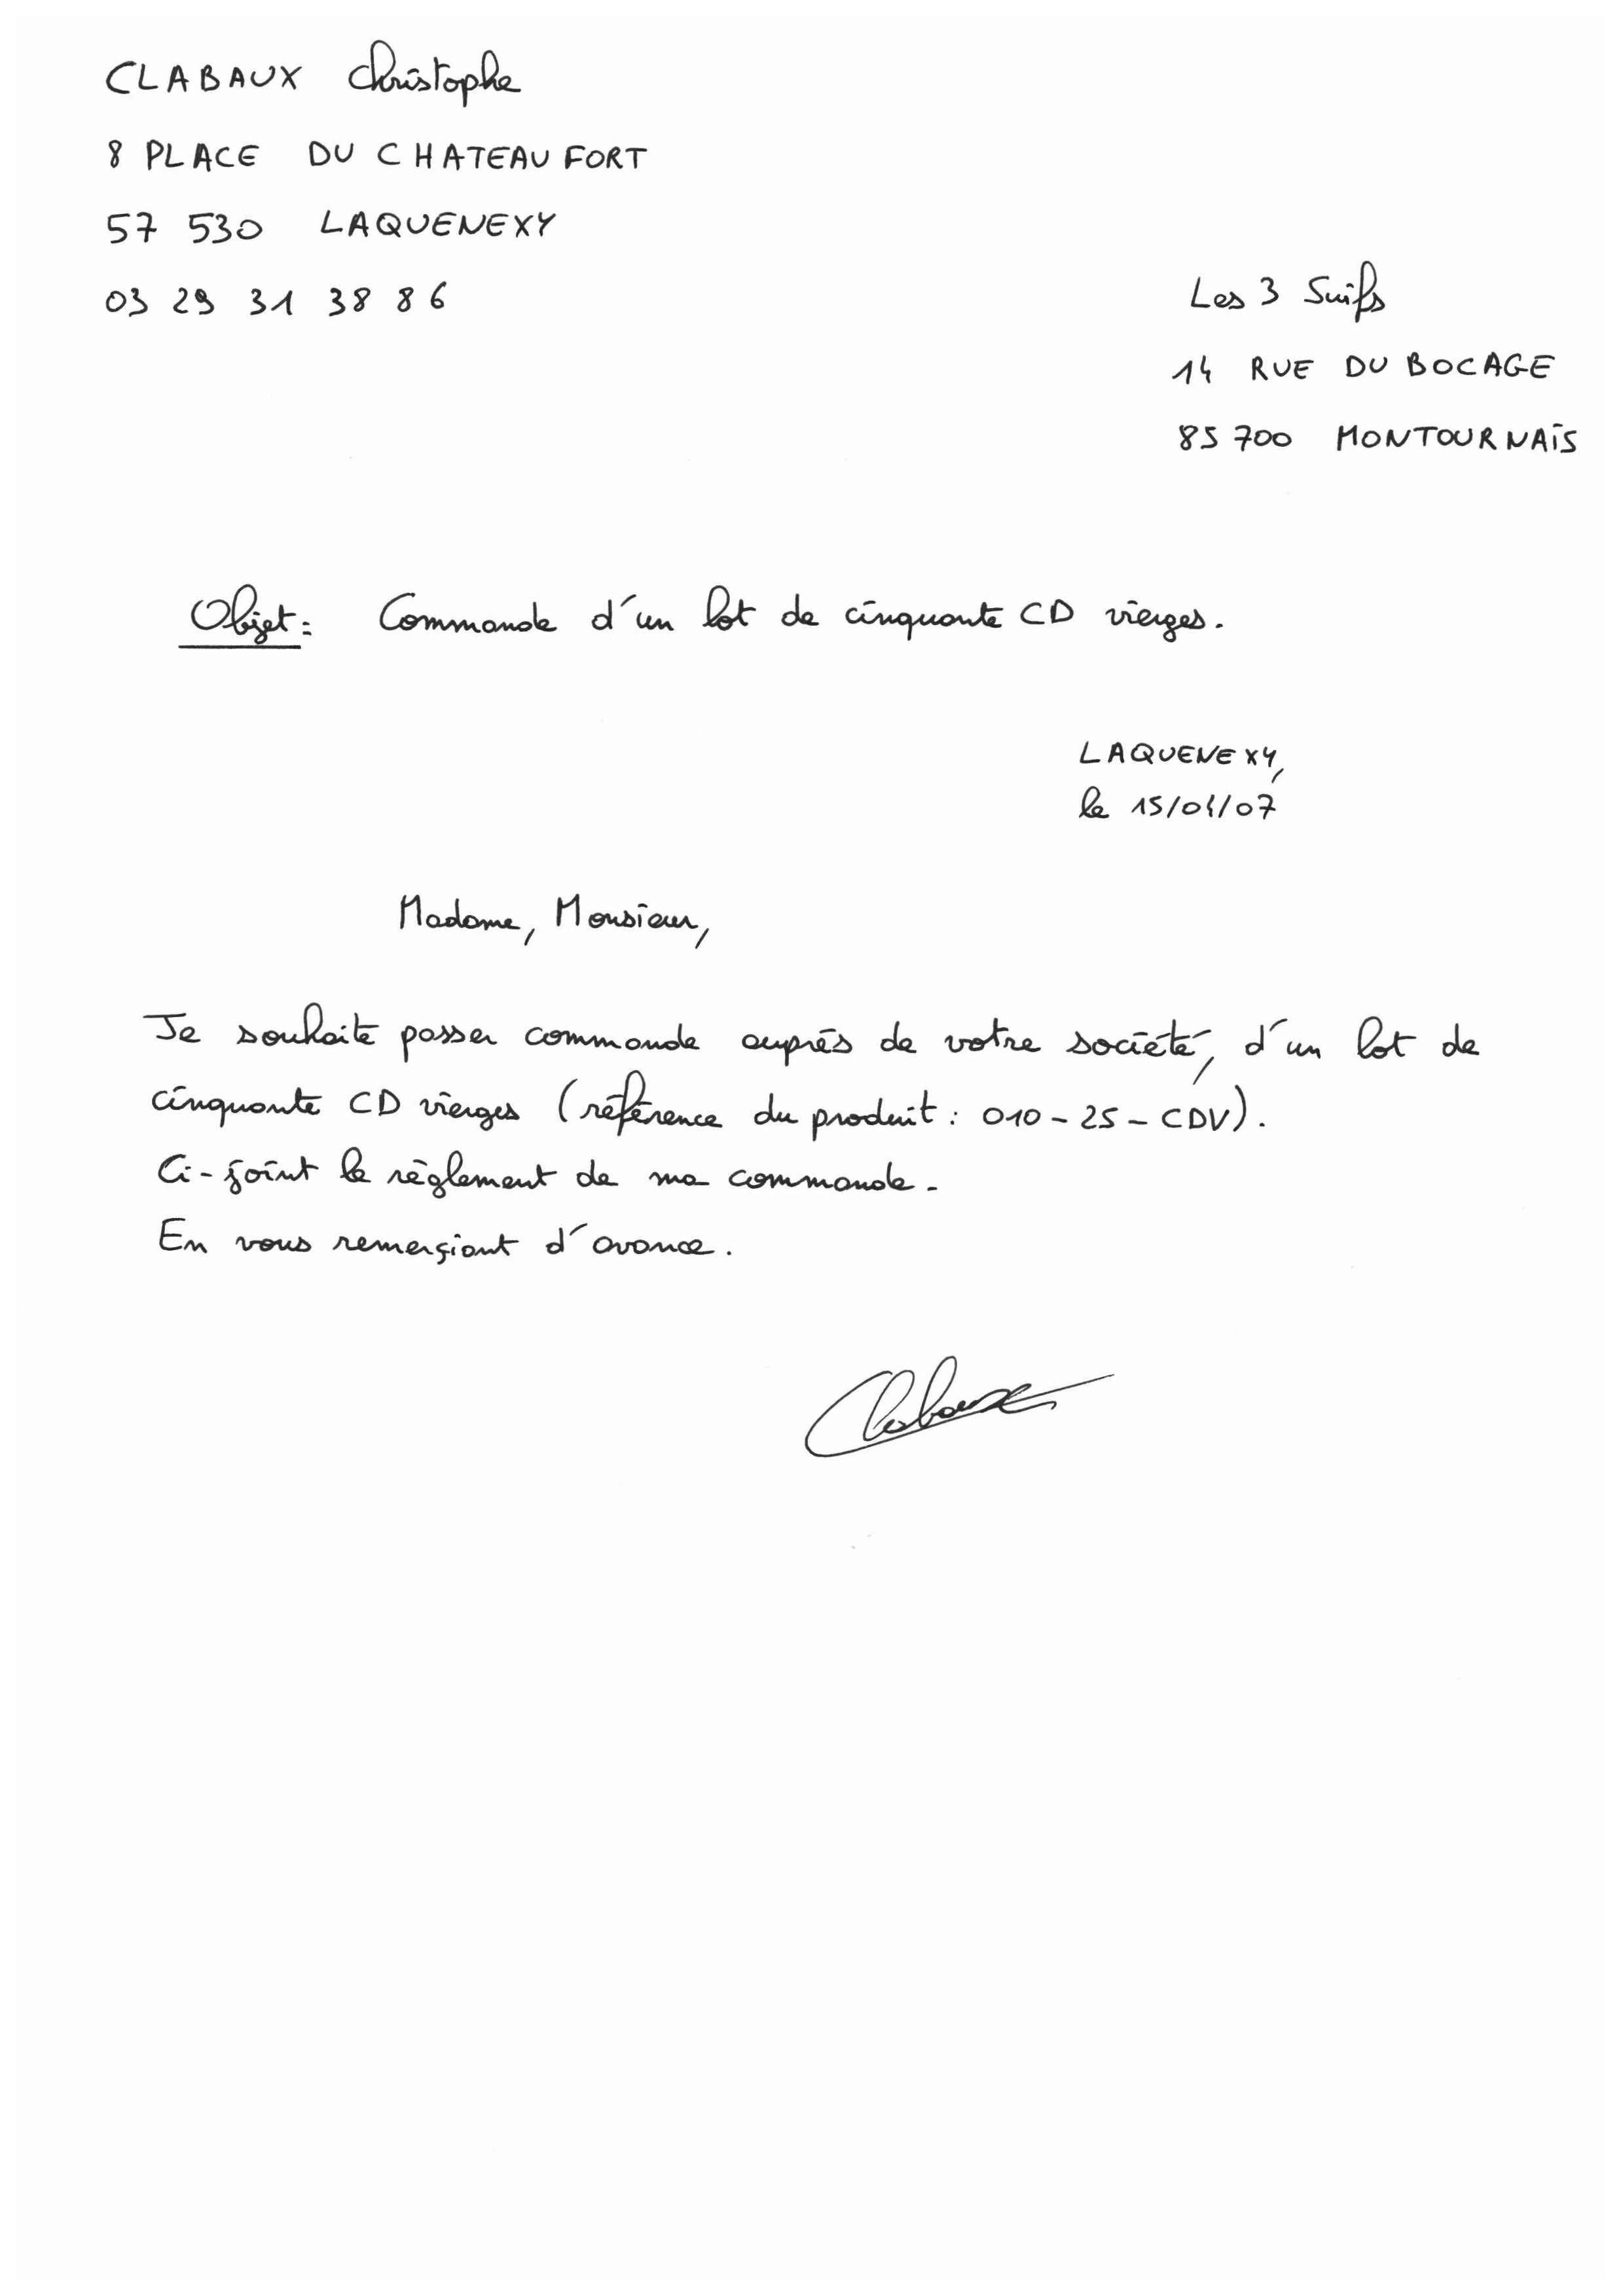 CLABAUX Christophe
8 PLACE DU CHATEAU FORT
57 530 LAQUENEXY
03 29 31 38 86
Les 3 Suifs
14 RUE DU BOCAGE
85 700 MONTOURNAIS
Objet : Commande d'un lot de cinquante CD vierges.
LAQUENEXY,
le 15/04/07
Madame, Monsieur,
Je souhaite passer commande auprés de votre société, d'un lot de
cinquante CD vierges (référence du produit : 010-25-CDV).
Ci-joint le règlement de ma commande.
En vous remerçiant d'avance.
Clabaux